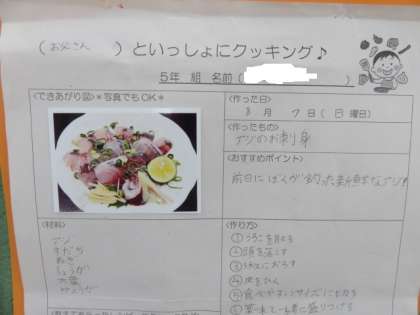 (お父さん)といっしょにクッキング♪
5年 組 名前(
<できあがり図>*写真でもOK*
<作った日>
8月 7日(日 曜日)
<作ったもの>
アジのお刺身
<おすすめポイント>
前日にぼくが釣った新鮮なアジ
<材料>
アジ
すだち
ねぎ
しょうが
大葉
<作り方>
①うろこを取る
②頭を落とす
③3枚におろす
④皮をむく
⑤食べやすいサイズに切る